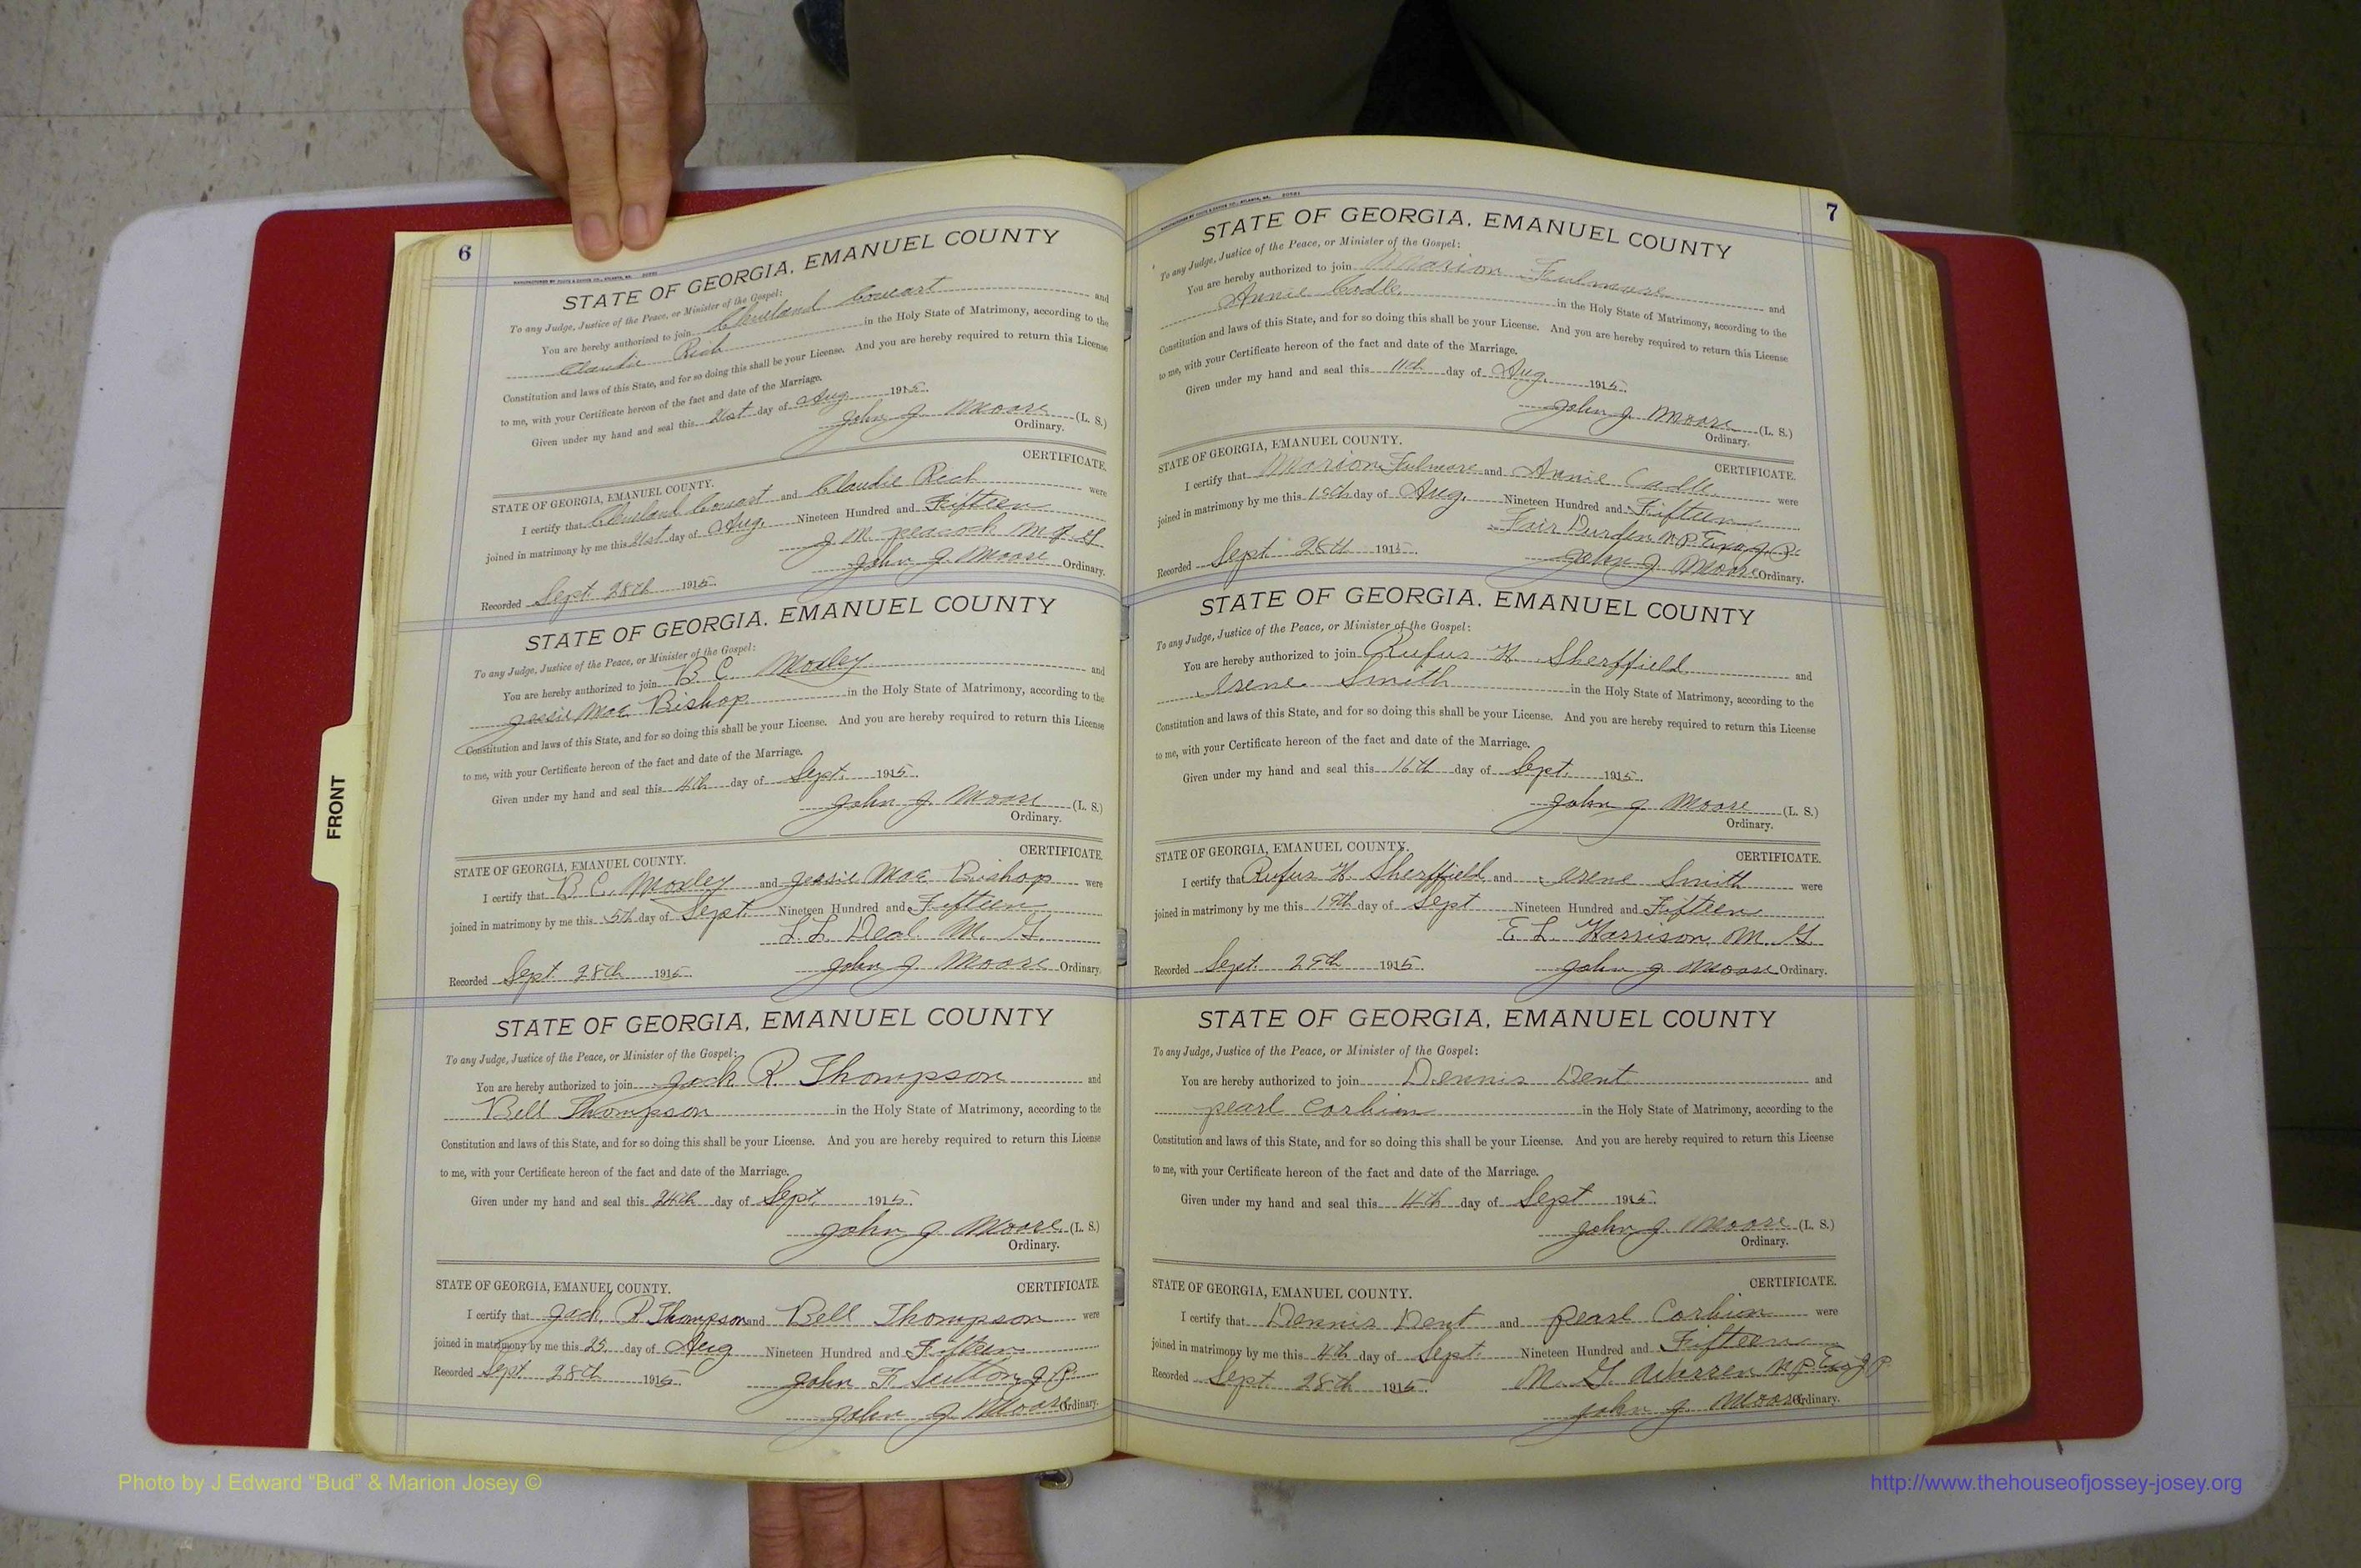 6
STATE OF GEORGIA, EMANUEL COUNTY
To any Judge, Justice of the Peace, or Minister of the Gospel:
You are hereby authorized to join Cleveland Cowart and
Claudie Rich in the Holy State of Matrimony, according to the
Constitution and laws of this State, and for so doing this shall be your License. And you are hereby required to return this License
to me, with your Certificate hereon of the fact and date of the Marriage.
Given under my hand and seal this 21st day of Aug 1915.
John J. Moore (L. S.)
Ordinary.
CERTIFICATE.
STATE OF GEORGIA, EMANUEL COUNTY.
I certify that Cleveland Cowart and Claudie Rich were
joined in matrimony by me this 21st day of Aug. Nineteen Hundred and Fifteen
J. M. Peacock M. G.
Recorded Sept. 28th 1915. John J. Moore Ordinary.
STATE OF GEORGIA, EMANUEL COUNTY
To any Judge, Justice of the Peace, or Minister of the Gospel:
You are hereby authorized to join B. C. Moxley and
Jessie Mae Bishop in the Holy State of Matrimony, according to the
Constitution and laws of this State, and for so doing this shall be your License. And you are hereby required to return this License
to me, with your Certificate hereon of the fact and date of the Marriage.
Given under my hand and seal this 4th day of Sept. 1915.
John J. Moore (L. S.)
Ordinary.
CERTIFICATE.
STATE OF GEORGIA, EMANUEL COUNTY.
I certify that B. C. Moxley and Jessie Mae Bishop were
joined in matrimony by me this 5th day of Sept. Nineteen Hundred and Fifteen
L. L. Deal M. G.
Recorded Sept. 28th 1915. John J. Moore Ordinary.
STATE OF GEORGIA, EMANUEL COUNTY
To any Judge, Justice of the Peace, or Minister of the Gospel:
You are hereby authorized to join Jack R. Thompson and
Bell Thompson in the Holy State of Matrimony, according to the
Constitution and laws of this State, and for so doing this shall be your License. And you are hereby required to return this License
to me, with your Certificate hereon of the fact and date of the Marriage.
Given under my hand and seal this 24th day of Sept. 1915.
John J. Moore (L. S.)
Ordinary.
STATE OF GEORGIA, EMANUEL COUNTY. CERTIFICATE.
I certify that Jack R Thompson and Bell Thompson were
joined in matrimony by me this 25 day of Aug Nineteen Hundred and Fifteen
Recorded Sept 28th 1915. John F. Sutton J. P.
John J. Moore Ordinary.
FRONT
7
STATE OF GEORGIA, EMANUEL COUNTY
To any Judge, Justice of the Peace, or Minister of the Gospel:
You are hereby authorized to join Marion Fulmore and
Annie Cadle in the Holy State of Matrimony, according to the
Constitution and laws of this State, and for so doing this shall be your License. And you are hereby required to return this License
to me, with your Certificate hereon of the fact and date of the Marriage.
Given under my hand and seal this 11th day of Aug. 1915.
John J. Moore (L. S.)
Ordinary.
STATE OF GEORGIA, EMANUEL COUNTY. CERTIFICATE.
I certify that Marion Fulmore and Annie Cadle were
joined in matrimony by me this day of Aug. Nineteen Hundred and Fifteen
Fair Durden N. P. Exo. J. P.
Recorded Sept 28th 1915. John J. Moore Ordinary.
STATE OF GEORGIA, EMANUEL COUNTY
To any Judge, Justice of the Peace, or Minister of the Gospel:
You are hereby authorized to join Rufus H. Sherffield and
Irene Smith in the Holy State of Matrimony, according to the
Constitution and laws of this State, and for so doing this shall be your License. And you are hereby required to return this License
to me, with your Certificate hereon of the fact and date of the Marriage.
Given under my hand and seal this 16th day of Sept. 1915.
John J. Moore (L. S.)
Ordinary.
STATE OF GEORGIA, EMANUEL COUNTY. CERTIFICATE.
I certify that Rufus H. Sherffield and Irene Smith were
joined in matrimony by me this 19th day of Sept Nineteen Hundred and Fifteen
E. L. Harrison, M. G.
Recorded Sept. 29th 1915. John J. Moore Ordinary.
STATE OF GEORGIA, EMANUEL COUNTY
To any Judge, Justice of the Peace, or Minister of the Gospel:
You are hereby authorized to join Dennis Dent and
Pearl Corbin in the Holy State of Matrimony, according to the
Constitution and laws of this State, and for so doing this shall be your License. And you are hereby required to return this License
to me, with your Certificate hereon of the fact and date of the Marriage.
Given under my hand and seal this 4th day of Sept 1915.
John J. Moore (L. S.)
Ordinary.
STATE OF GEORGIA, EMANUEL COUNTY. CERTIFICATE.
I certify that Dennis Dent and Pearl Corbin were
joined in matrimony by me this 4th day of Sept. Nineteen Hundred and Fifteen
Recorded Sept. 28th 1915. M. G. Warren N. P. Exo J. P.
John J. Moore Ordinary.
Photo by J Edward “Bud” & Marion Josey ©
http://www.thehouseofjossey-josey.org